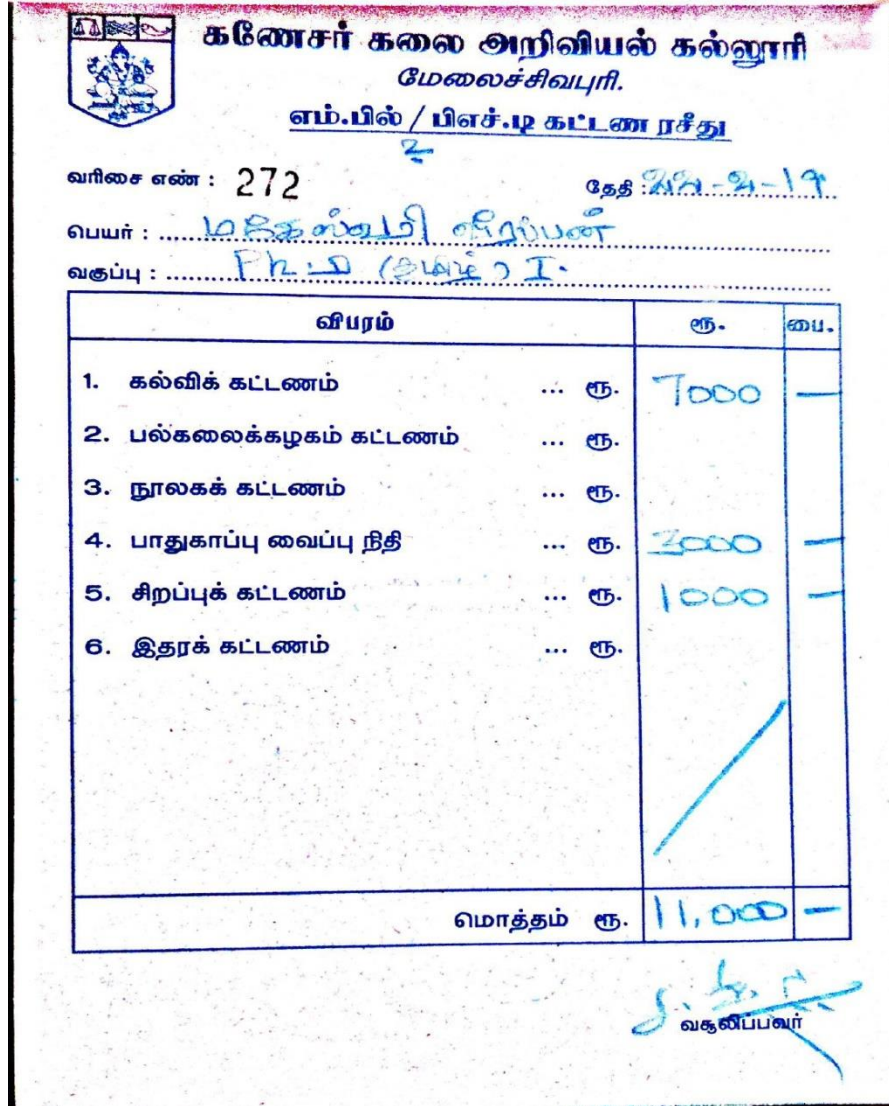 கணேசர் கலை அறிவியல் கல்லூரி
மேலைச்சிவபுரி.
எம்.பில் / பிஎச்.டி கட்டண ரசீது
வரிசை எண் : 272 தேதி : 22-2-19
பெயர் : மகேஸ்வரி வீரப்பன்
வகுப்பு : Ph.D (தமிழ்) I.
விபரம் ரூ. பை.
1. கல்விக் கட்டணம் ... ரூ. 7000 —
2. பல்கலைக்கழகம் கட்டணம் ... ரூ.
3. நூலகக் கட்டணம் ... ரூ.
4. பாதுகாப்பு வைப்பு நிதி ... ரூ. 3000 —
5. சிறப்புக் கட்டணம் ... ரூ. 1000 —
6. இதரக் கட்டணம் ... ரூ.
மொத்தம் ரூ. 11,000 —
வசூலிப்பவர்